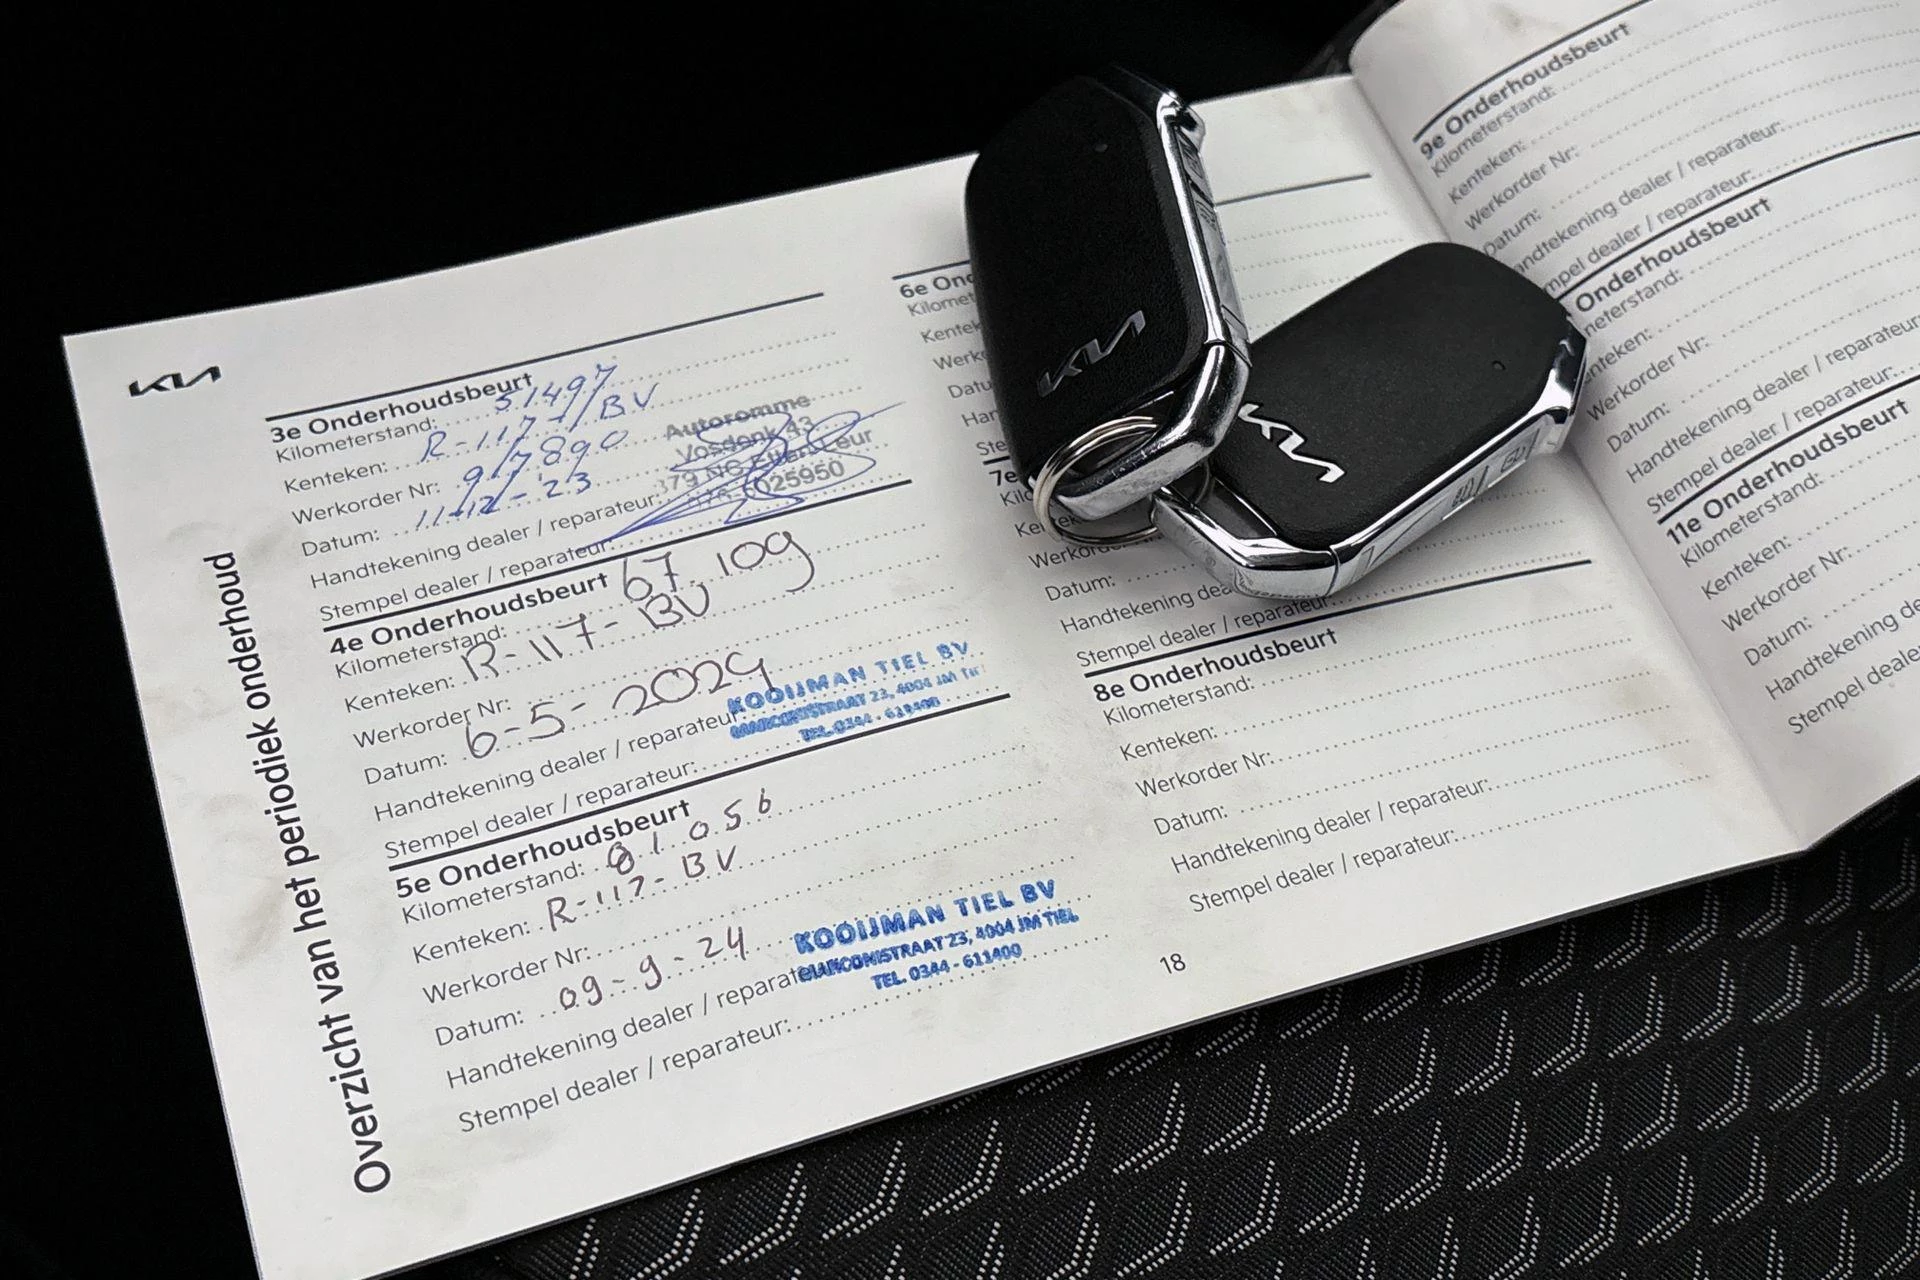 KIA
Overzicht van het periodiek onderhoud
3e Onderhoudsbeurt
Kilometerstand: 51497
Kenteken: R-117/BV
Werkorder Nr: 917890
Datum: 11-12-23
Handtekening dealer / reparateur:
Stempel dealer / reparateur:
Autoromme
Vosdonk 43
025950
4e Onderhoudsbeurt
Kilometerstand: 67.109
Kenteken: R-117-BV
Werkorder Nr:
Datum: 6-5-2024
Handtekening dealer / reparateur
Stempel dealer / reparateur:
KOOIJMAN TIEL BV
MARCONISTRAAT 23, 4004 JM
TEL. 0344 - 611400
5e Onderhoudsbeurt
Kilometerstand: 81.056
Kenteken: R-117-BV
Werkorder Nr:
Datum: 09-9-24
Handtekening dealer / reparate
Stempel dealer / reparateur:
KOOIJMAN TIEL BV
MARCONISTRAAT 23, 4004 JM TIEL
TEL. 0344 - 611400
6e Ond
Kilomet
Kenteke
Werk
Datu
Ha
Ste
7e
Kilo
Kentek
Werkorde
Datum:
Handtekening dea
Stempel dealer / reparateur:
8e Onderhoudsbeurt
Kilometerstand:
Kenteken:
Werkorder Nr:
Datum:
Handtekening dealer / reparateur:
Stempel dealer / reparateur:
18
9e Onderhoudsbeurt
Kilometerstand:
Kenteken:
Werkorder Nr:
Datum:
andtekening dealer / reparateur:
mpel dealer / reparateur:
Onderhoudsbeurt
neterstand:
nteken:
Werkorder Nr:
Datum:
Handtekening dealer / reparateur
Stempel dealer / reparateur:
11e Onderhoudsbeurt
Kilometerstand:
Kenteken:
Werkorder Nr:
Datum:
Handtekening de
Stempel dealer
KIA
KIA